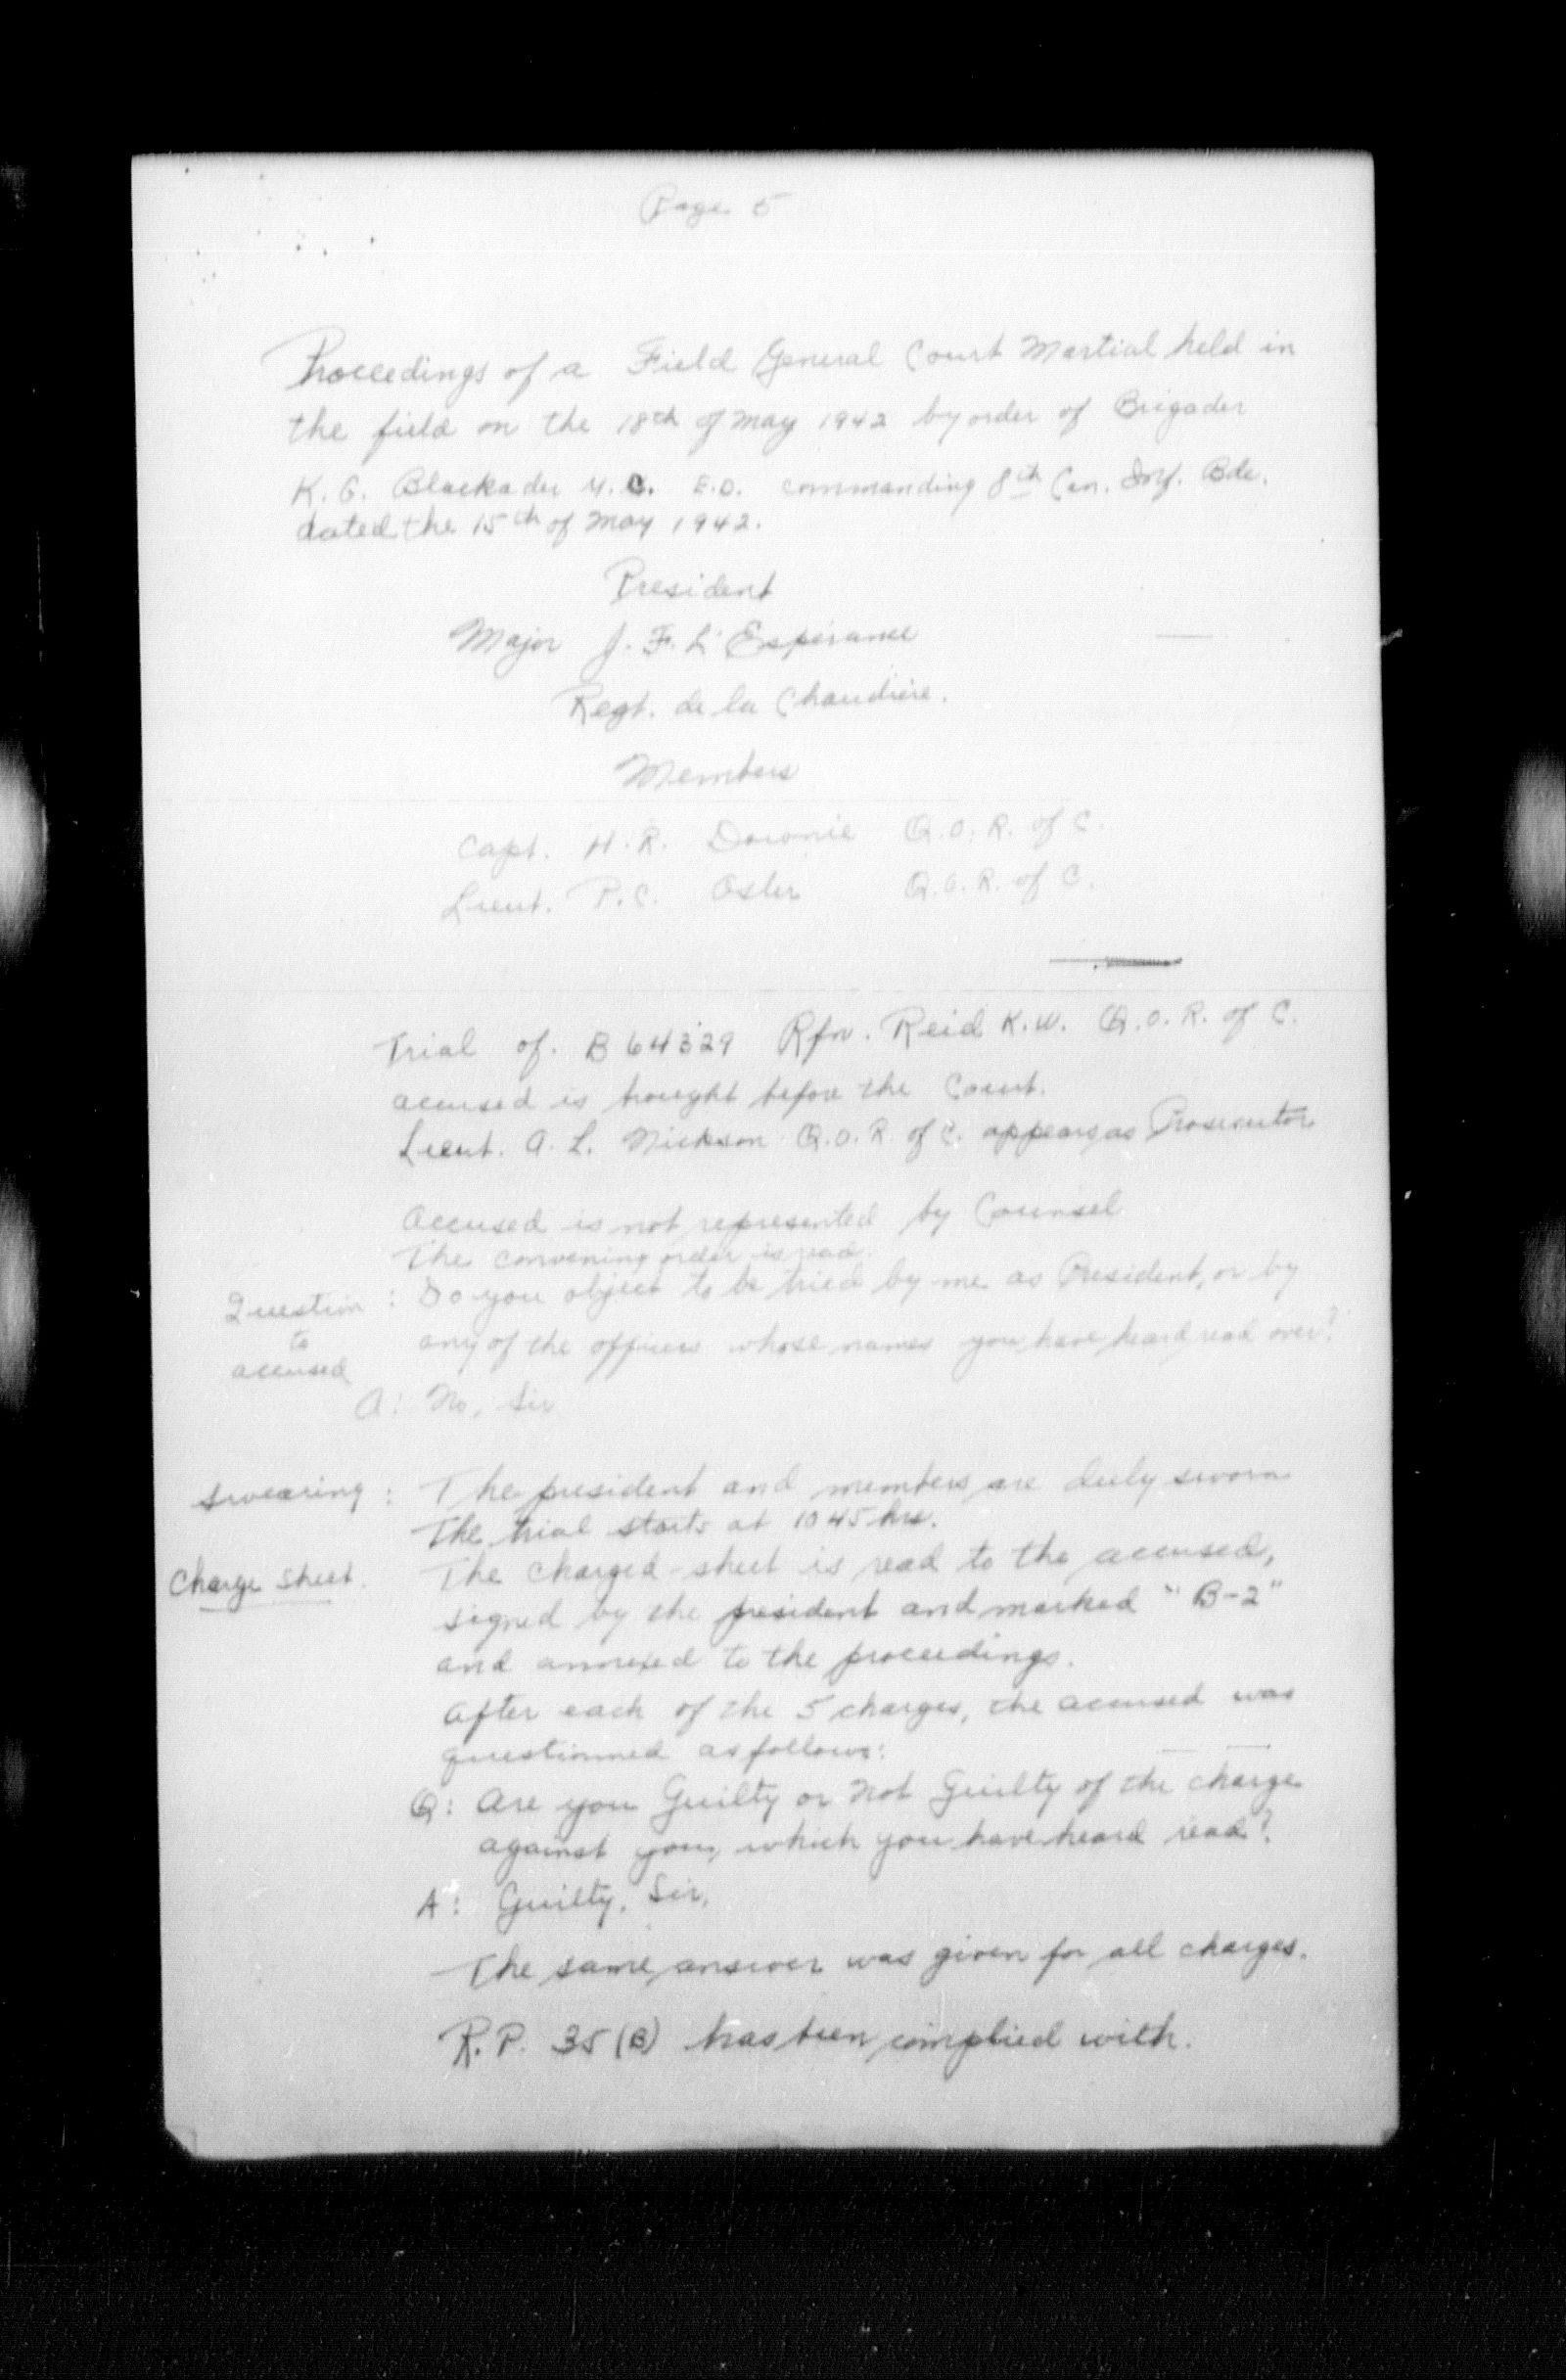 Page 5
Proceedings of a Field General Court Martial held in
the field on the 18th of May 1942 by order of Brigader
K. G. Blackader M.C. E.D. commanding 8th Can. Inf. Bde.
dated the 15th of May 1942.
President
Major J. F. L'Espérance
Regt. de la Chaudière.
Members
Capt. H. R. Downie Q.O.R. of C.
Lieut. P. C. Osler Q.O.R. of C.
Trial of. B 64329 Rfn. Reid K.W. Q.O.R. of C.
accused is brought before the Court.
Lieut. A. L. Nickson Q.O.R. of C. appears as Prosecutor
Accused is not represented by Counsel
The convening order is read.
Question to accused : Do you object to be tried by me as President, or by
any of the officers whose names you have heard read over?
A: No, Sir
Swearing : The president and members are duly sworn
The trial starts at 1045 hrs.
Charge Sheet. The Charged-sheet is read to the accused,
signed by the president and marked "B-2"
and annexed to the proceedings.
After each of the 5 charges, the accused was
questionned as follows:
Q: Are you Guilty or Not Guilty of the charge
against you, which you have heard read?
A: Guilty, Sir,
The same answer was given for all charges.
R.P. 35 (B) has been complied with.